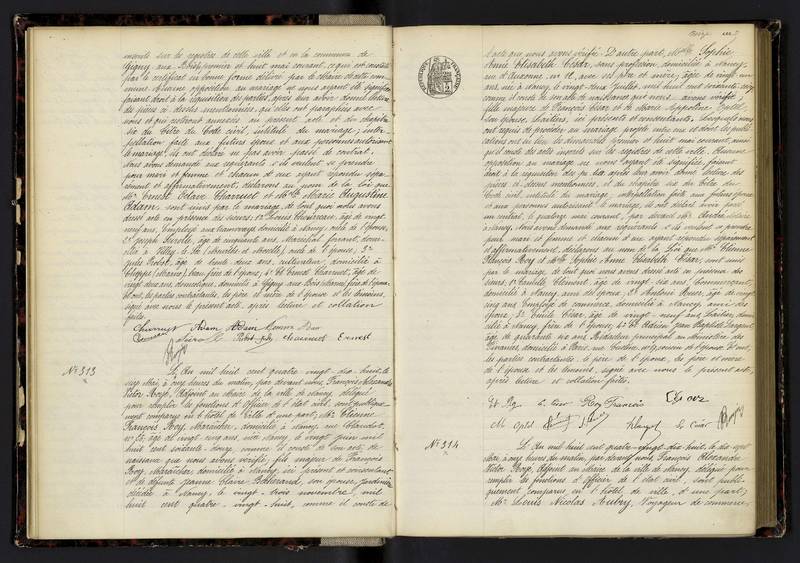 inscrite sur les registres de cette ville et en la commune de
Gigny aux Bois, premier et huit mai courant, ce qui est constaté
par le certificat en bonne forme délivré par le Maire de cette com-
mune. Aucune opposition au mariage ne nous ayant été signifiée
faisant droit à la réquisition des parties, après leur avoir donné lecture
des pièces ci-dessus mentionnées, qu'elles ont paraphées avec
nous et qui resteront annexées au présent acte et du chapitre
six du Titre du Code civil, intitulé du mariage; inter-
pellation faite aux futurs époux et aux personnes autorisant
le mariage, ils ont déclaré ne pas avoir passé de contrat.
Nous avons demandé aux requérants s'ils veulent se prendre
pour mari et femme et chacun d'eux ayant répondu sépa-
rément et affirmativement, déclarons au nom de la loi que
Mr. Ernest Claire Charruet et Mlle Marie Augustine
Adam sont unis par le mariage, de tout quoi nous avons
dressé acte en présence des sieurs: 1° Louis âgé de vingt
neuf ans, Employé aux tramways domicilié à Nancy, ami de l'épouse,
2° Joseph âgé de cinquante ans, Maréchal ferrant, domi-
cilié à (Meurthe et Moselle), oncle de l'épouse, 3°
âgé de trente deux ans, cultivateur, domicilié à
(Marne), beau frère de l'époux, 4° et Ernest Charruet, âgé de
vingt deux ans, domestique, domicilié à Gigny aux Bois (Marne) frère de l'époux
Et ont, les parties contractantes, les père et mère de l'épouse et les témoins,
signé avec nous le présent acte, après lecture et collation
faites.
Charruet Adam Adam
Charruet Ernest
No 313
L'An mil huit cent quatre vingt dix huit, le
dix Mai, à onze heures du matin, par devant nous, François Alexandre
Victor Boyé, Adjoint au Maire de la ville de Nancy, délégué
pour remplir les fonctions d'Officier de l'état civil, sont publique-
ment comparus en l'hôtel de Ville d'une part, Mr. Etienne
François Roy, Maraîcher, domicilié à Nancy, rue
No 75, âgé de vingt cinq ans, né à Nancy, le vingt juin mil
huit cent soixante douze, comme il conste de son acte de
naissance que nous avons vérifié, fils majeur de François
Roy, Maraîcher, domicilié à Nancy, ici présent et consentant
et de défunte Jeanne Claire son épouse,
décédée à Nancy, le vingt trois novembre, mil
huit cent quatre vingt huit, comme il conste de
l'acte que nous avons vérifié. D'autre part, Mlle Sophie
Anne Elisabeth César, sans profession, domiciliée à Nancy,
rue d'Auxonne, No 12, avec ses père et mère, âgée de vingt-un
ans, née à Nancy, le vingt deux Juillet, mil huit cent soixante seize,
comme il conste de son acte de naissance que nous avons vérifié,
fille majeure de François César et de Marie
son épouse, laitiers, ici présents et consentants. Lesquels nous
ont requis de procéder au mariage projeté entre eux et dont les publi-
cations ont eu lieu les dimanches premier et huit mai courant, ainsi
qu'il conste des actes inscrits sur les registres de cette ville. Aucune
opposition au mariage ne nous ayant été signifiée, faisant
droit à la réquisition des parties après leur avoir donné lecture des
pièces ci-dessus mentionnées, et du chapitre six du titre du
Code civil, intitulé du mariage; interpellation faite aux futurs époux
et aux personnes autorisant le mariage, ils ont déclaré avoir passé
un contrat, le quatorze mai courant, par devant Me André, Notaire
à Nancy. Nous avons demandé aux requérants s'ils veulent se prendre
pour mari et femme et chacun d'eux ayant répondu séparément
et affirmativement, déclarons au nom de la Loi que Mr. Etienne
François Roy et Mlle Sophie Anne Elisabeth César, sont unis
par le mariage, de tout quoi nous avons dressé acte en présence des
sieurs: 1° Camille Clément, âgé de vingt six ans, Commerçant,
domicilié à Nancy, ami de l'époux; 2° Antoine âgé de vingt
cinq ans, Employé de commerce, domicilié à Nancy, ami de
l'époux; 3° Emile César, âgé de vingt neuf ans, laitier, domi-
cilié à Nancy, frère de l'épouse; 4° et Adrien Jean Baptiste
âgé de quarante six ans, Rédacteur principal au Ministère des
Finances, domicilié à Paris, cousin de l'épouse. Et ont,
les parties contractantes, le père de l'époux, les père et mère
de l'épouse et les témoins, signé avec nous le présent acte,
après lecture et collation faites.
Et. Roy E. César Roy François César
E. César
No 314
L'An mil huit cent quatre-vingt-dix huit, le dix sept
Mai, à onze heures du matin, par devant nous, François Alexandre
Victor Boyé, Adjoint au Maire de la ville de Nancy, délégué pour
remplir les fonctions d'Officier de l'état civil, sont publi-
quement comparus en l'hôtel de ville, d'une part,
Mr. Louis Nicolas Aubry, Voyageur de commerce,